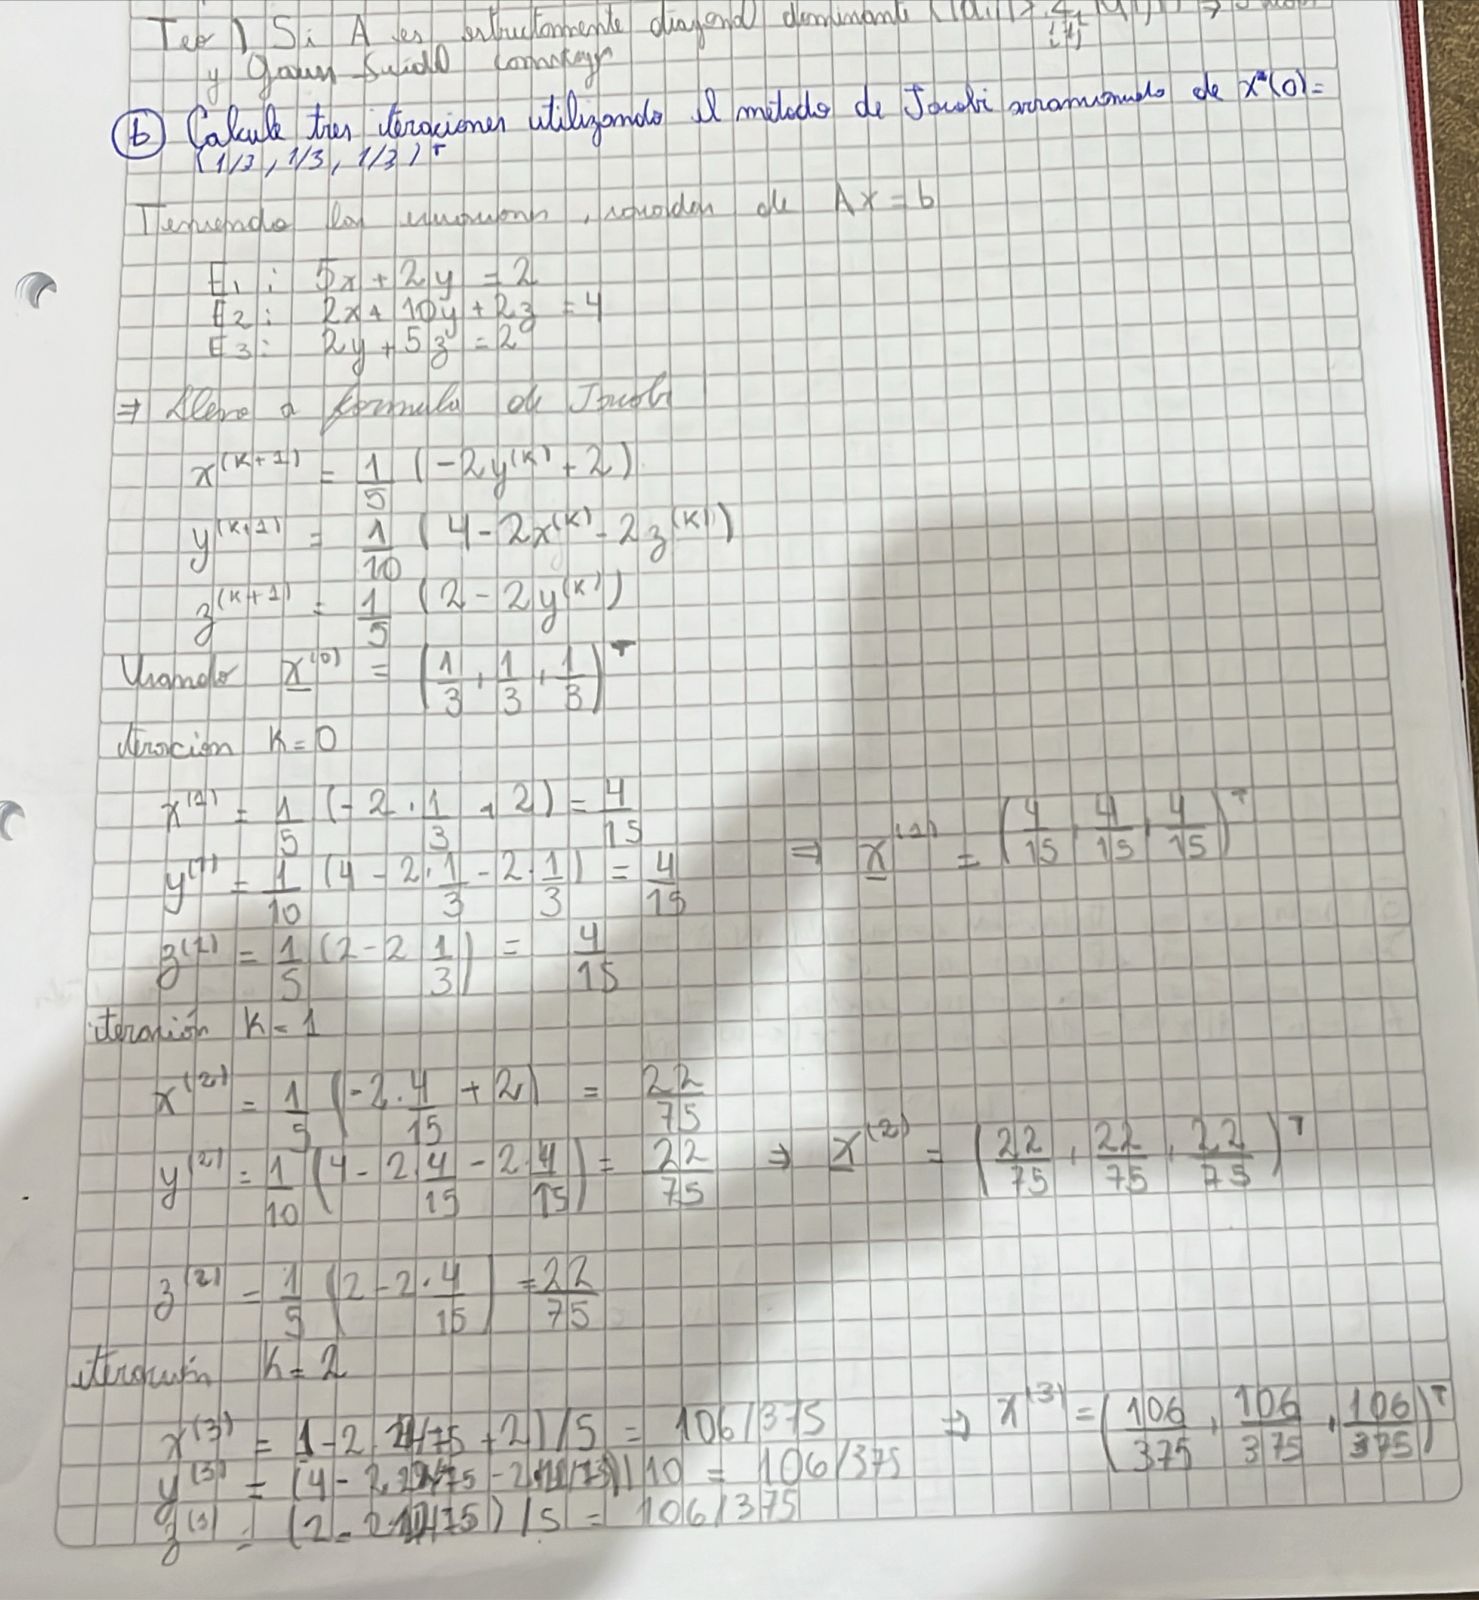 Teo) Si A es estrictamente diagonal dominante
y Gauss-Seidel
(b) Calcule tres iteraciones utilizando el método de Jacobi arrancando de x^(0)=
(1/3, 1/3, 1/3)^T
Teniendo las ecuaciones, de Ax = b
E1: 5x + 2y = 2
E2: 2x + 10y + 2z = 4
E3: 2y + 5z = 2
⇒ Llevo a formula de Jacobi
x^(k+1) = 1/5 (-2y^(k) + 2)
y^(k+1) = 1/10 (4 - 2x^(k) - 2z^(k))
z^(k+1) = 1/5 (2 - 2y^(k))
Usando x^(0) = (1/3, 1/3, 1/3)^T
iteración K=0
x^(1) = 1/5 (-2 · 1/3 + 2) = 4/15
y^(1) = 1/10 (4 - 2·1/3 - 2·1/3) = 4/15 ⇒ x^(1) = (4/15, 4/15, 4/15)^T
z^(1) = 1/5 (2 - 2 1/3) = 4/15
iteración K=1
x^(2) = 1/5 (-2·4/15 + 2) = 22/75
y^(2) = 1/10 (4 - 2·4/15 - 2·4/15) = 22/75 ⇒ x^(2) = (22/75, 22/75, 22/75)^T
z^(2) = 1/5 (2 - 2·4/15) = 22/75
iteración K=2
x^(3) = (-2 · 22/75 + 2)/5 = 106/375 ⇒ x^(3) = (106/375, 106/375, 106/375)^T
y^(3) = (4 - 2·22/75 - 2·22/75)/10 = 106/375
z^(3) = (2 - 2·22/75)/5 = 106/375